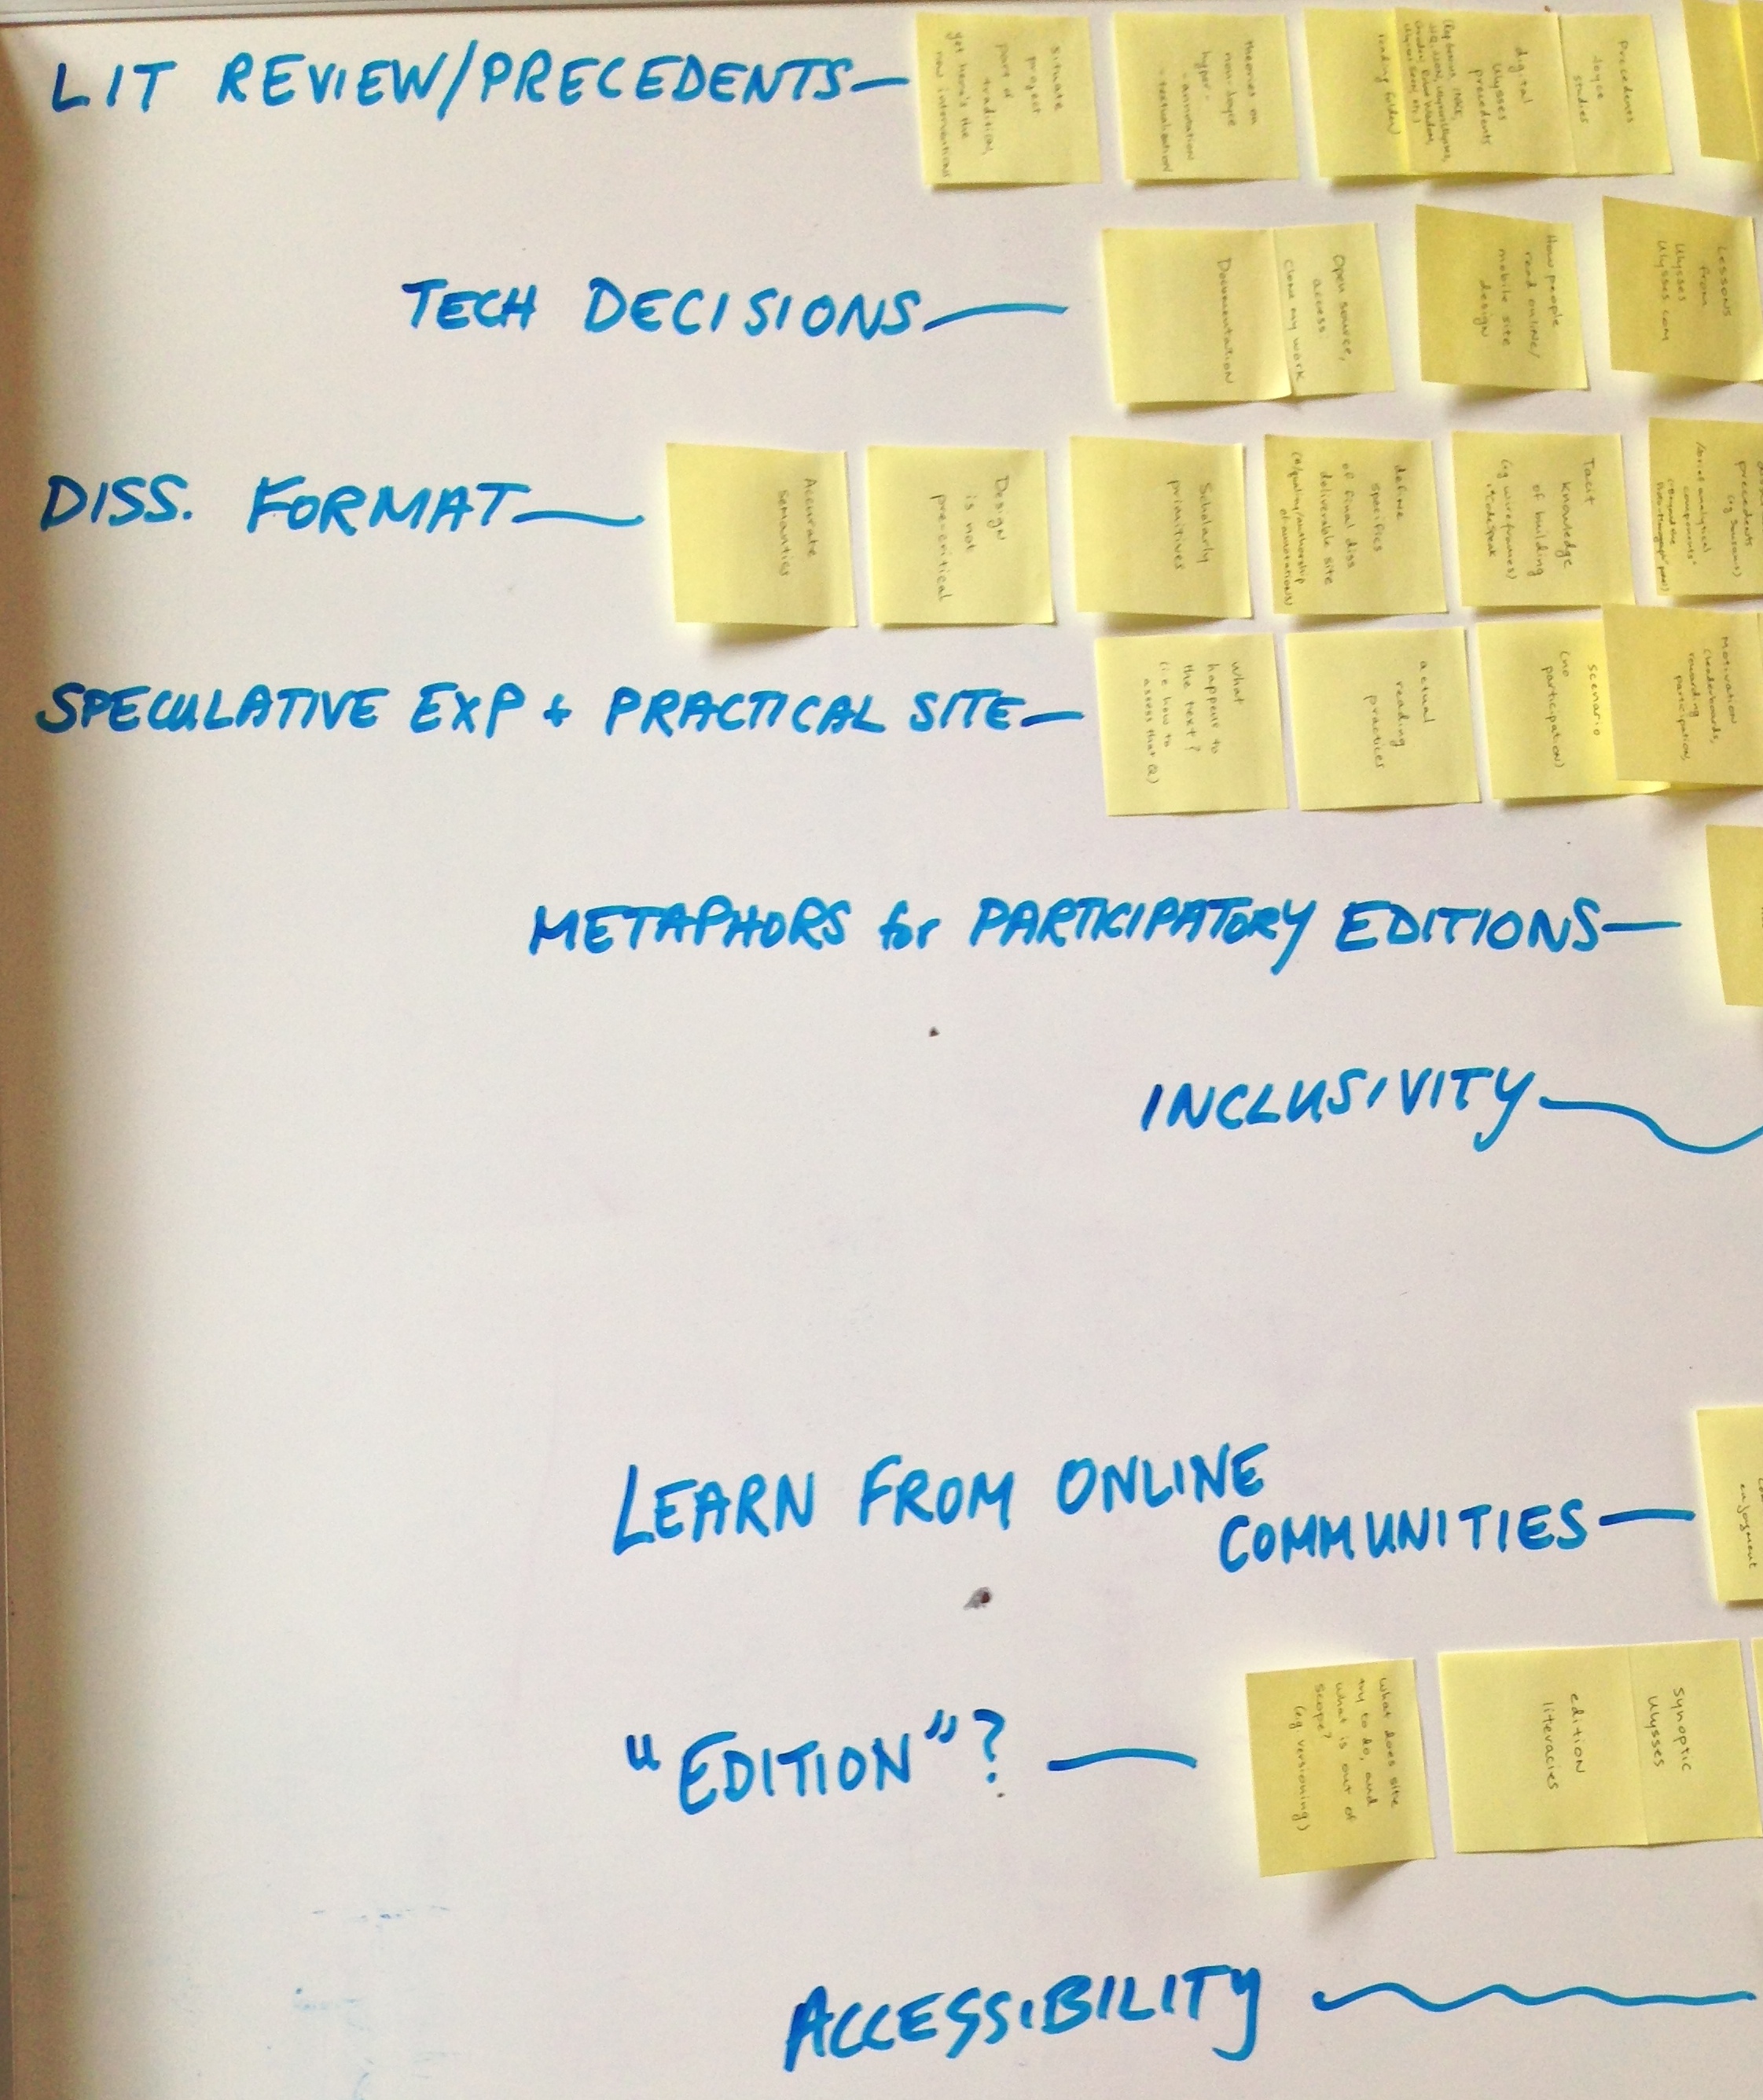 LIT REVIEW/PRECEDENTS
situate
project
part of
tradition,
yet here's the
new interventions
theories on
non-Joyce
hyper-
-annotation
-textualization
reading folder)
digital
Ulysses
precedents
Precedents
Joyce
studies
TECH DECISIONS
Documentation
Open source,
access
clone my work
How people
read online/
mobile site
design
Lessons
from
Ulysses
Ulysses.com
DISS. FORMAT
Accurate
semantics
Design
is not
precritical
Scholarly
primitives
define
specifics
of final diss
deliverable site
of annotations)
Tacit
knowledge
of building
(eg wireframes)
precedents
components"
SPECULATIVE EXP + PRACTICAL SITE
What
happens to
the text?
(i.e. how to
assess that Q)
actual
reading
practices
scenario
(no
participation)
Motivation
(leaderboards,
rewarding
participation,
METAPHORS for PARTICIPATORY EDITIONS
INCLUSIVITY
LEARN FROM ONLINE
COMMUNITIES
enjoyment
"EDITION"?
what does site
try to do, and
what is out of
scope?
(eg versioning)
edition
literacies
synoptic
Ulysses
ACCESSIBILITY